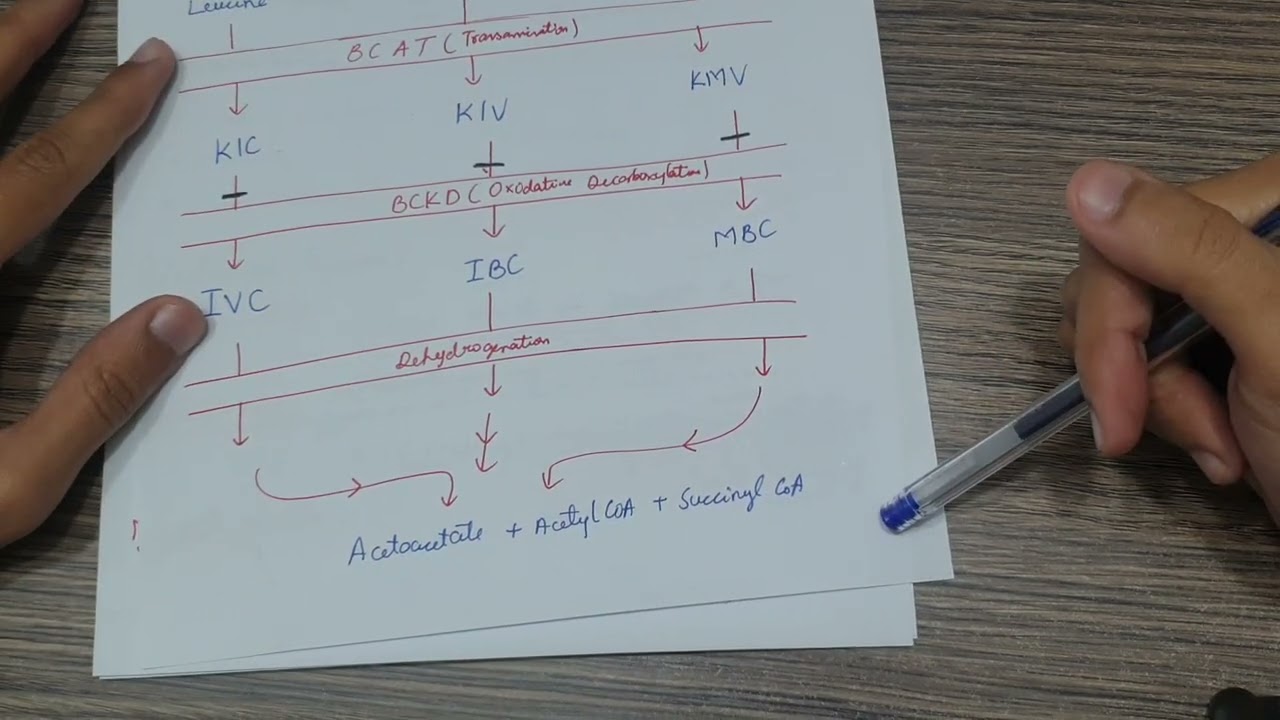 Leucine
BCAT (Transamination)
KIC KIV KMV
BCKD (Oxodative Decarboxylation)
IVC IBC MBC
Dehydrogenation
Acetoacetate + Acetyl CoA + Succinyl CoA